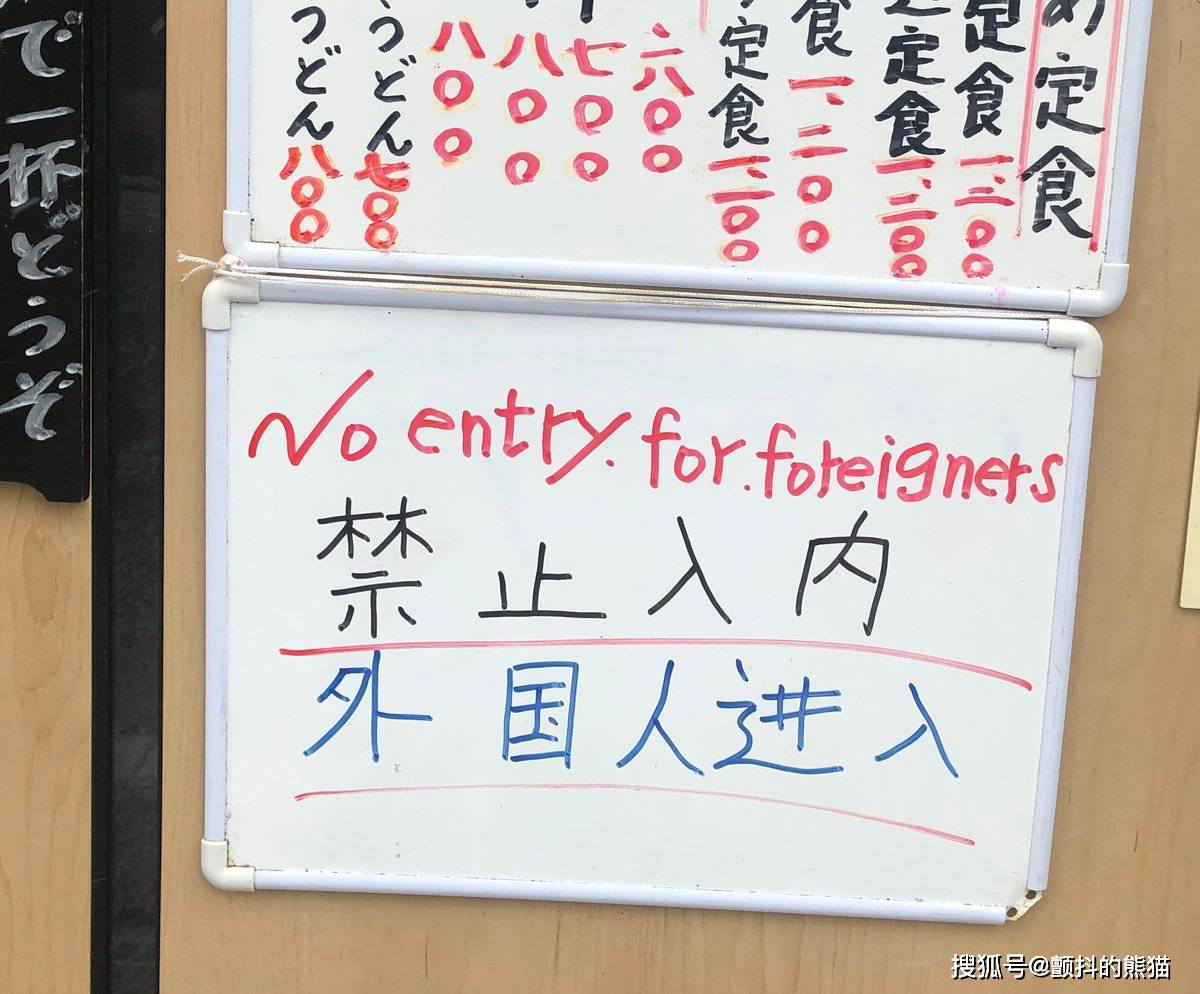 定食
定食 一、二〇〇
定食 一、二〇〇
食 一、二〇〇
定食
六〇〇
七〇〇
八〇〇
八〇〇
うどん 七〇〇
うどん 八〇〇
で一杯どうぞ
No entry. for. foreigners
禁止入内
外国人进入
搜狐号@颤抖的熊猫